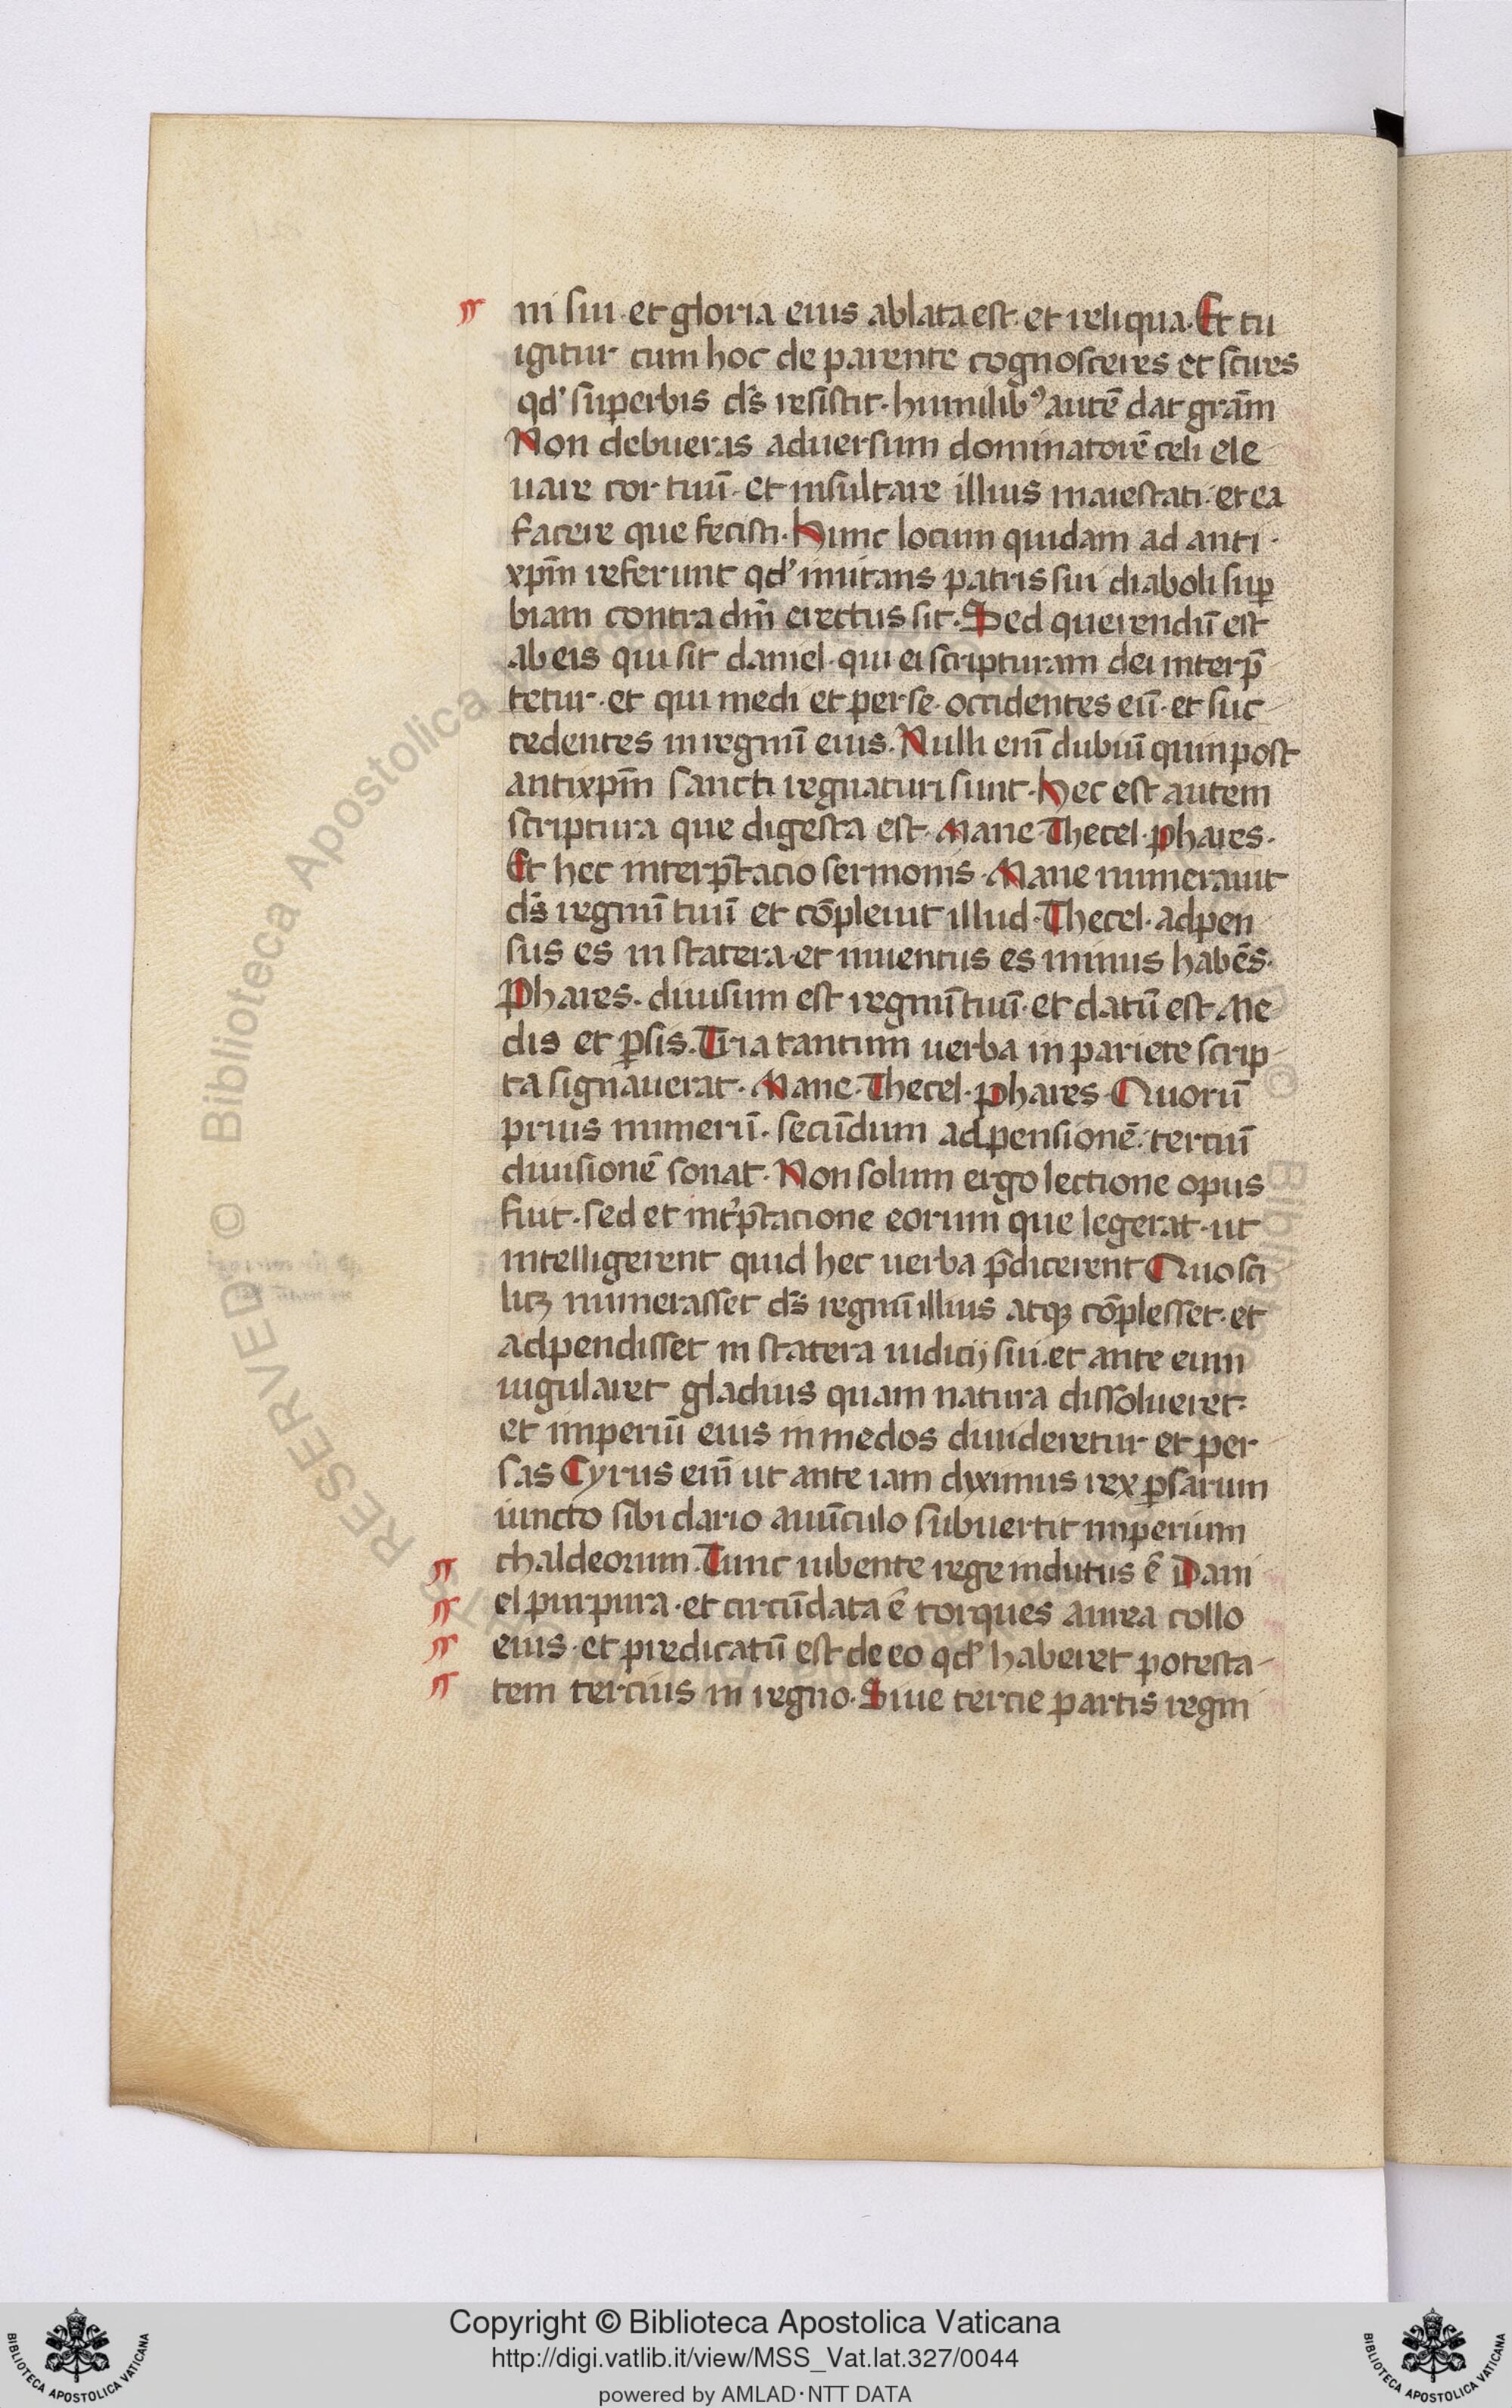 ni sui et gloria eius ablata est et reliqua. Et tu
igitur cum hoc de parente cognosceres et scires
qd' superbis ds̄ resistit. humilibꝰ autē dat grām
Non debueras aduersum dominatorē celi ele
uare cor tuū. et insultare illius maiestati. et ea
facere que fecisti. Hunc locum quidam ad anti
xpm̄ referunt qd' imitans patris sui diaboli sup̄
biam contra dm̄ erectus sit. Sed querendū est
ab eis qui sit daniel. qui ei scripturam dei interp̄
tetur. et qui medi et perse. occidentes eū. et suc
cedentes in regnū eius. Nulli enī dubiū quin post
antixpm̄ sancti regnaturi sunt. Hec est autem
scriptura que digesta est. Mane. Thecel. phares.
Et hec interp̄tacio sermonis. Mane numerauit
ds̄ regnū tuū et cōpleuit illud. Thecel. adpen
sus es in statera. et inuentus es minus habēs.
Phares. diuisum est regnū tuū. et datū est Me
dis et ꝑsis. Tria tantum uerba in pariete scrip
ta signauerat. Mane. Thecel. phares. Quorū
prius numerū. secūdum adpensionē. terciū
diuisionē sonat. Non solum ergo lectione opus
fuit. sed et int'p̄tacione eorum que legerat. ut
intelligerent quid hec uerba p̄dicerent Quo sci
licꝫ numerasset ds̄ regnū illius atqꝫ cōplesset. et
adpendisset in statera iudicij sui. et ante eum
iugularet gladius quam natura dissolueret.
et imperiū eius in medos diuideretur et per
sas Cyrus enī ut ante iam diximus rex ꝑsarum
iuncto sibi dario auūculo subuertit imperium
chaldeorum. Tunc iubente rege indutus ē Dani
el purpura. et circūdata ē torques aurea collo
eius. et predicatū est de eo qd' haberet potesta
tem tercius in regno. Siue tercie partis regni
RESERVED © Biblioteca Apostolica
Copyright © Biblioteca Apostolica Vaticana
http://digi.vatlib.it/view/MSS_Vat.lat.327/0044
powered by AMLAD·NTT DATA
BIBLIOTECA APOSTOLICA VATICANA
BIBLIOTECA APOSTOLICA VATICANA